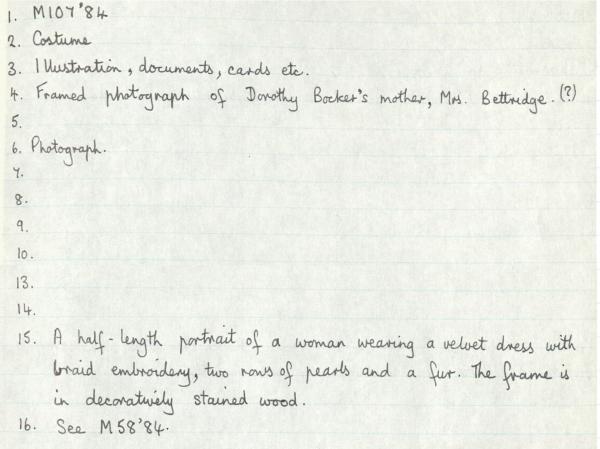 1. M107'84
2. Costume
3. Illustration, documents, cards etc.
4. Framed photograph of Dorothy Bocker's mother, Mrs. Bettridge. (?)
5.
6. Photograph.
7.
8.
9.
10.
13.
14.
15. A half-length portrait of a woman wearing a velvet dress with
braid embroidery, two rows of pearls and a fur. The frame is
in decoratively stained wood.
16. See M58'84.